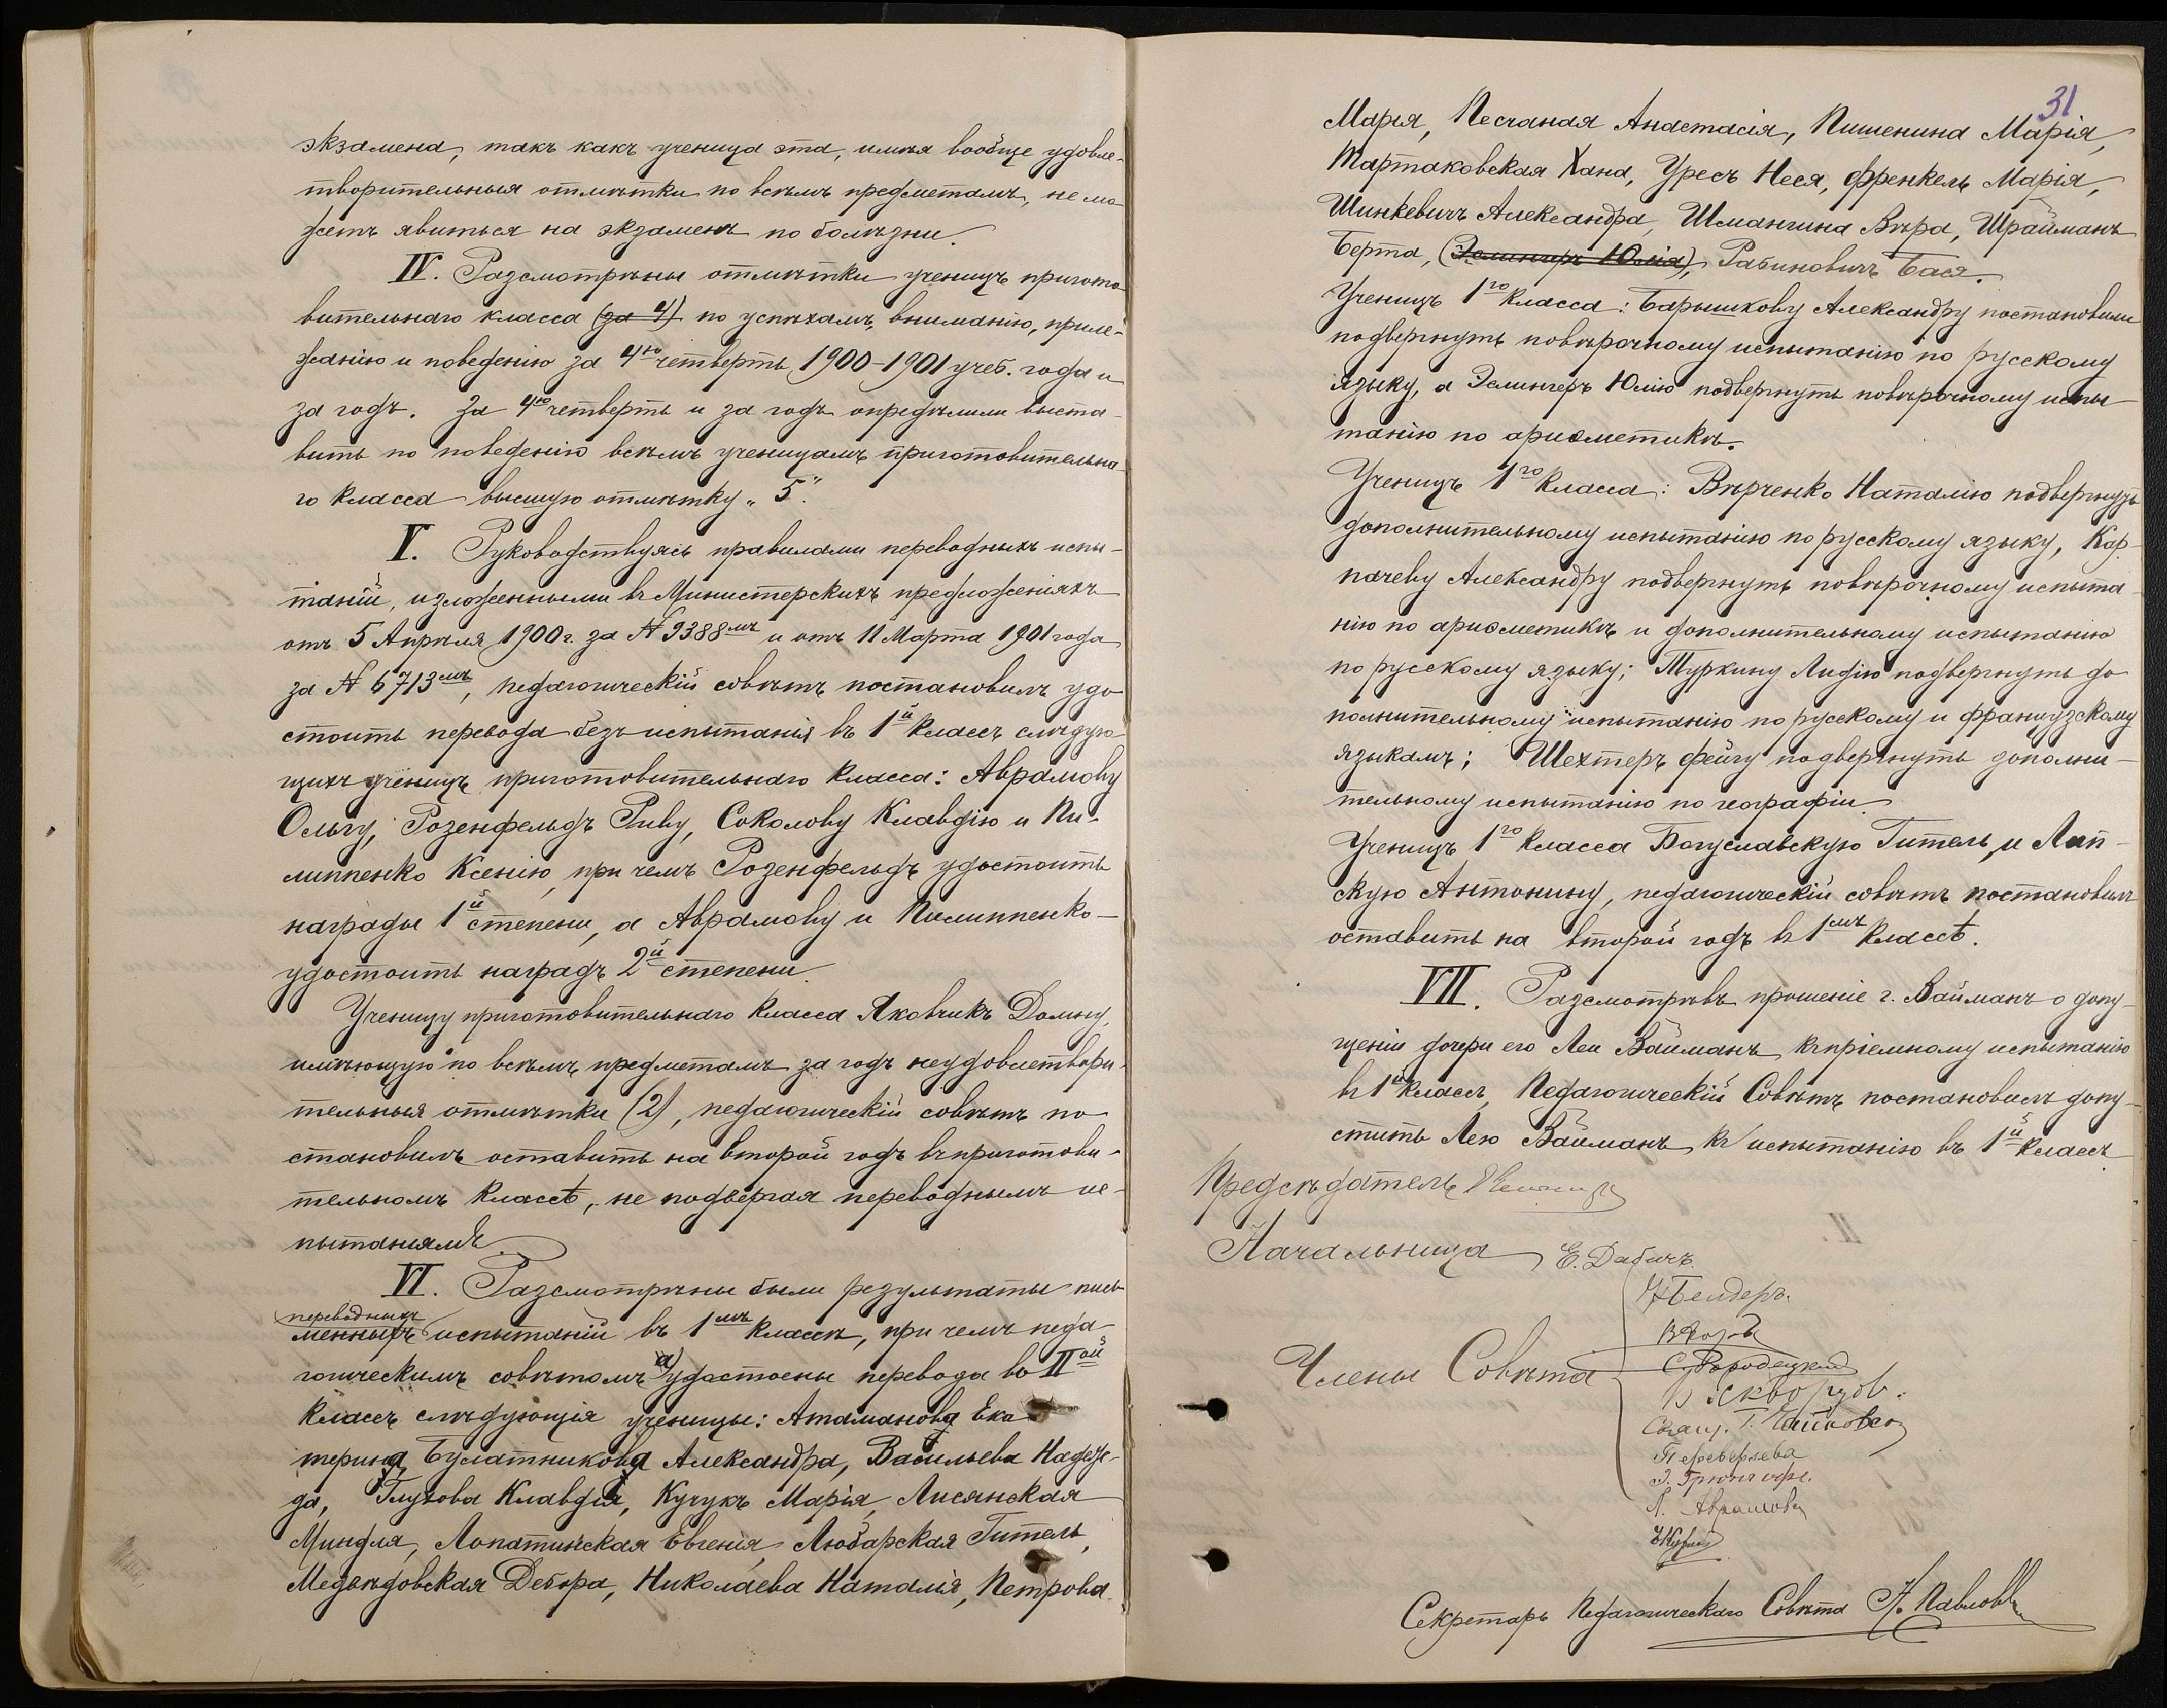 экзамена, такъ какъ ученица эта, имѣя вообще удовле-
творительныя отмѣтки по всѣмъ предметамъ, не мо
жетъ явиться на экзаменъ по болѣзни.
IV. Разсмотрѣны отмѣтки ученицъ пригото
вительнаго класса (за 4) по успѣхамъ, вниманію, приле-
жанію и поведенію за 4ю четверть 1900-1901 учеб. года и
за годъ. За 4ю четверть и за годъ опредѣлили выста-
вить по поведенію всѣмъ ученицамъ приготовительна-
го класса высшую отмѣтку „5".
V. Руководствуясь правилами переводныхъ испы-
таній, изложенными въ Министерскихъ предложеніяхъ
отъ 5 Апрѣля 1900 г. за № 9388мъ и отъ 11 Марта 1901 года
за № 6713мъ, педагогическій совѣтъ постановилъ удо
стоить перевода безъ испытанія въ 1й классъ слѣдую-
щихъ ученицъ приготовительнаго класса: Аврамову
Ольгу, Розенфельдъ Риву, Соколову Клавдію и Пи-
липпенко Ксенію, при чемъ Розенфельдъ удостоить
награды 1й степени, а Аврамову и Пилиппенко-
удостоить наградъ 2й степени.
Ученицу приготовительнаго класса Яковчикъ Домну,
имѣющую по всѣмъ предметамъ за годъ неудовлетвори-
тельныя отмѣтки (2), педагогическій совѣтъ по
становилъ оставить на второй годъ въ приготови-
тельномъ классѣ, не подвергая переводнымъ ис-
пытаніямъ.
VI. Разсмотрѣны были результаты пись
переводныхъ
менныхъ испытаній въ 1мъ классѣ, при чемъ педа-
гогическимъ совѣтомъ а) удостоены перевода во IIой
классъ слѣдующія ученицы: Атаманова Ека-
терина, Булатникова Александра, Васильева Надеж-
да, Глухова Клавдія, Кучукъ Марія, Лисянская
Миндля, Лопатинская Евгенія, Любарская Гитель,
Медвѣдовская Дебора, Николаева Наталія, Петрова
31
Марія, Песчаная Анастасія, Пишенина Марія,
Тартаковская Хана, Уресъ Неся, Френкель Марія,
Шинкевичъ Александра, Шмангина Вѣра, Шрайманъ
Берта, (Эслингеръ Юлія), Рабиновичъ Бася.
Ученицъ 1го класса: Барышкову Александру постановили
подвергнуть повѣрочному испытанію по русскому
языку, а Эслингеръ Юлію подвергнуть повѣрочному испы-
танію по ариѳметикѣ.
Ученицъ 1го класса: Вѣрченко Наталію подвергнуть
дополнительному испытанію по русскому языку, Кар-
пачеву Александру подвергнуть повѣрочному испыта-
нію по ариѳметикѣ и дополнительному испытанію
по русскому языку; Туркину Лидію подвергнуть до
полнительному испытанію по русскому и французскому
языкамъ; Шехтеръ Фейгу подвергнуть дополни-
тельному испытанію по географіи.
Ученицъ 1го класса Богуславскую Гитель, и Лип-
скую Антонину, педагогическій совѣтъ постановилъ
оставить на второй годъ въ 1мъ классѣ.
VII. Разсмотрѣвъ прошеніе г. Вайманъ о допу-
щеніи дочери его Леи Вайманъ къ пріемному испытанію
въ 1й классъ, Педагогическій Совѣтъ постановилъ допу-
стить Лею Вайманъ къ испытанію въ 1й классъ.
Предсѣдатель
Начальница Е. Дабичъ.
Бендеръ.
Члены Совѣта
С. Городецкій
Скворцов.
Свящ. Г. Чайковск
Переверзева
Л. Аврамова
Секретарь Педагогическаго Совѣта Н. Павлов